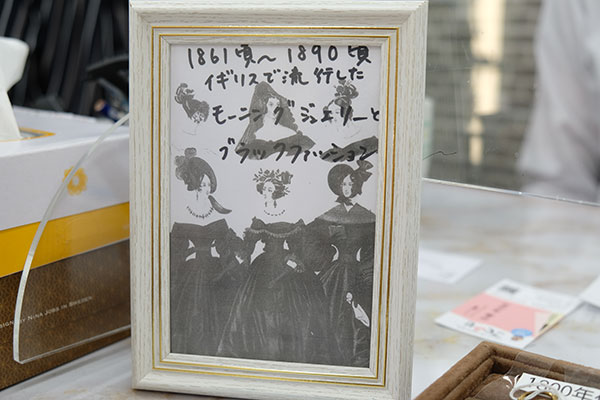 1861頃～1890頃
イギリスで流行した
モーニングジュエリーと
ブラックファッション
DESIGN BY NINA JOBS IN SWEDEN
1890年